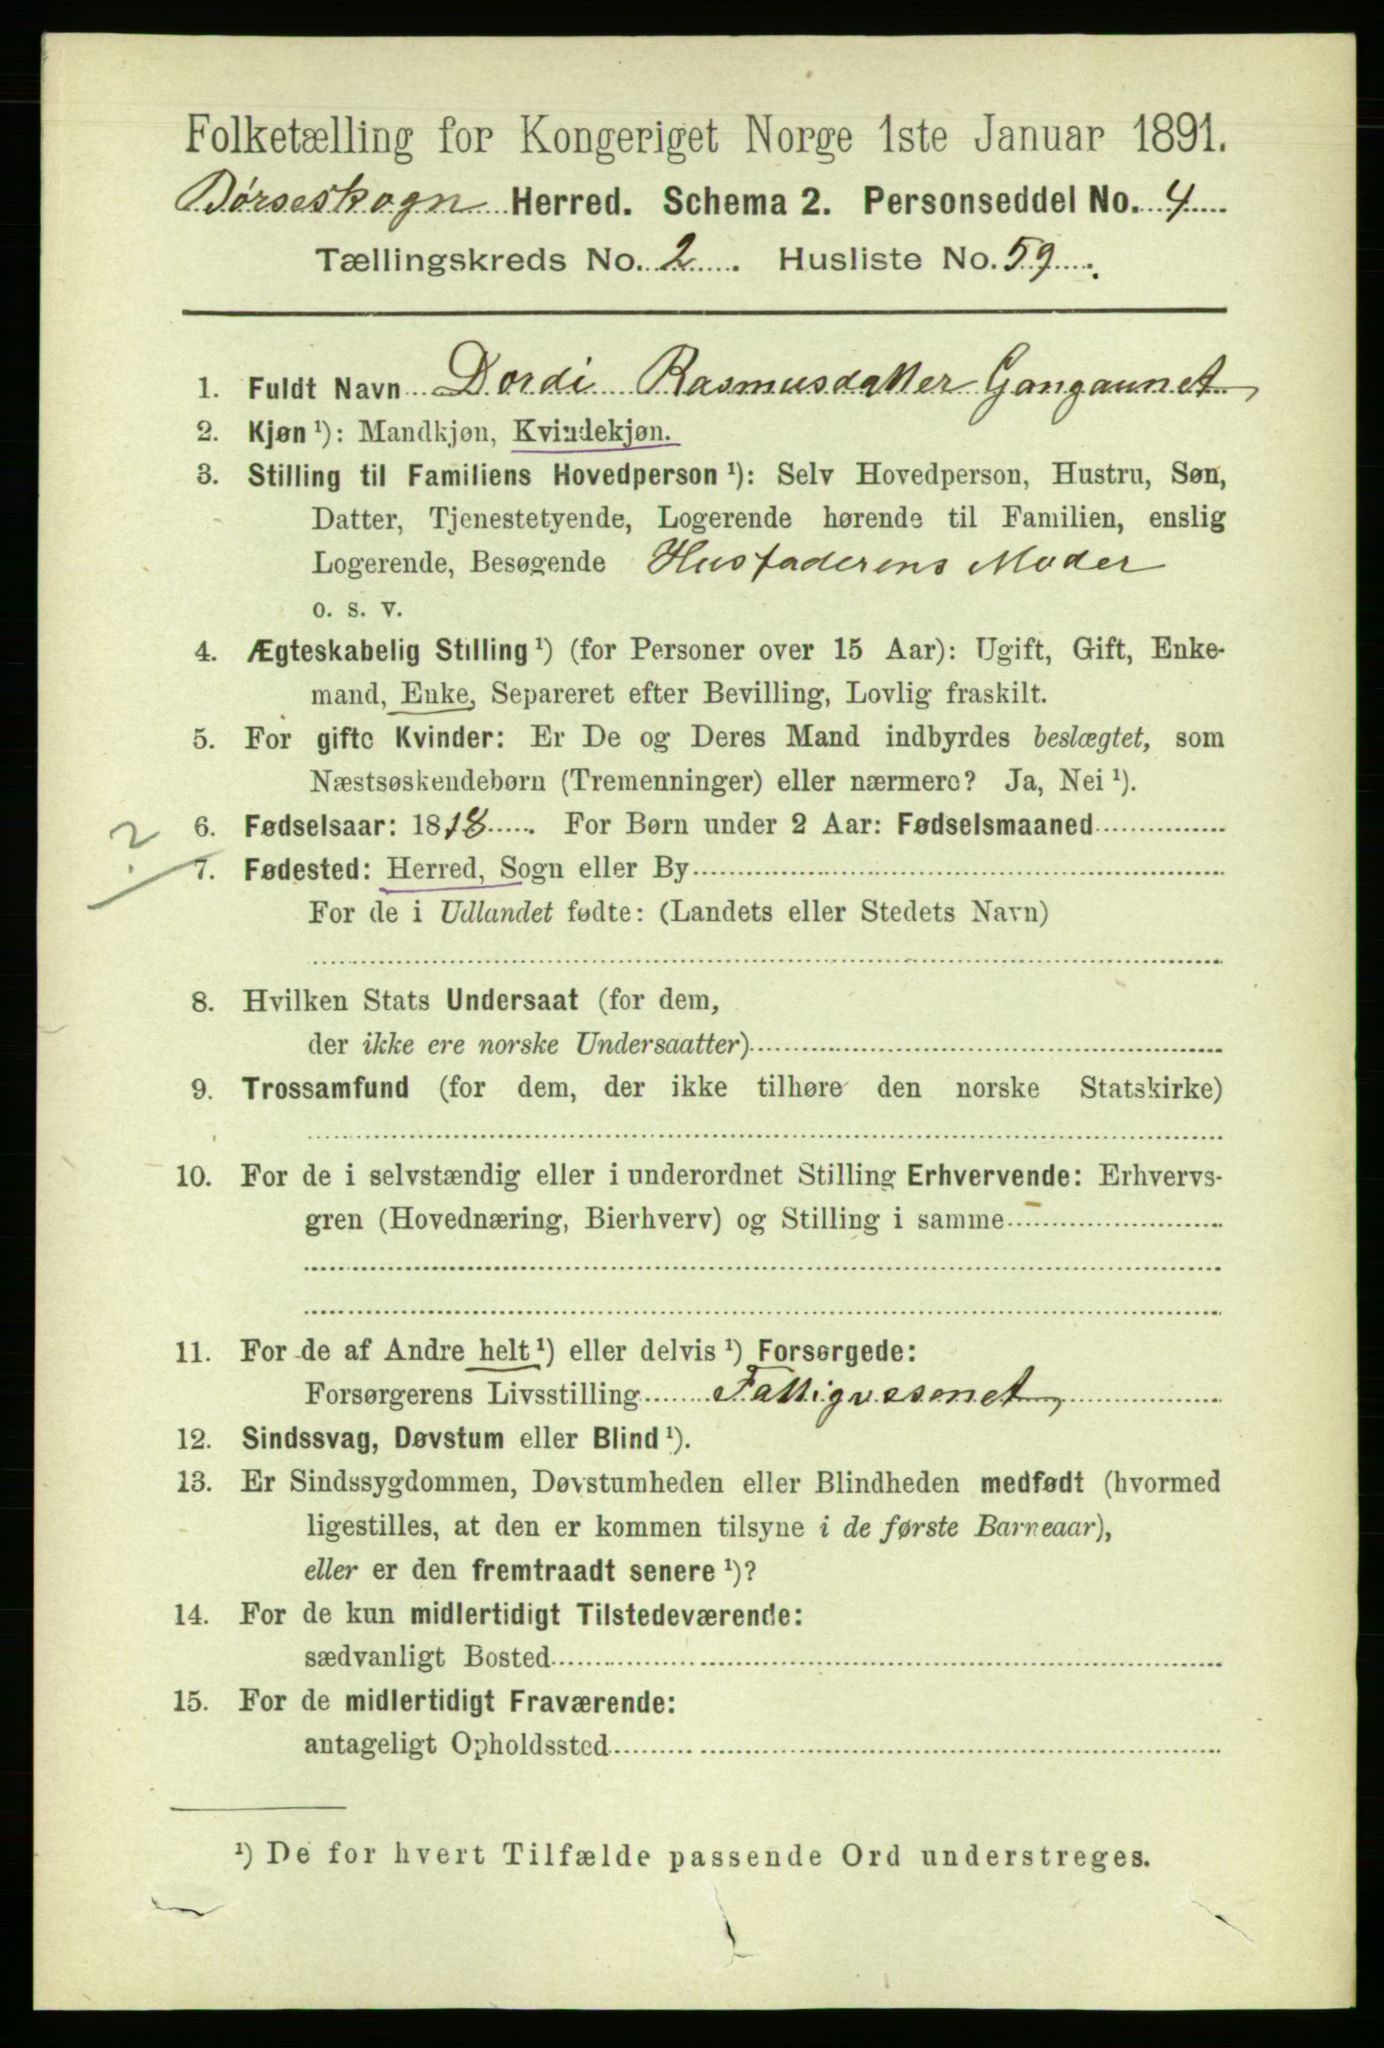 Folketælling for Kongeriget Norge 1ste Januar 1891.
Børseskogn Herred. Schema 2. Personseddel No. 4
Tællingskreds No. 2. Husliste No. 59.
1. Fuldt Navn Dordi Rasmusdatter Gangaunet
2. Kjøn ¹): Mandkjøn, Kvindekjøn.
3. Stilling til Familiens Hovedperson ¹): Selv Hovedperson, Hustru, Søn,
Datter, Tjenestetyende, Logerende hørende til Familien, enslig
Logerende, Besøgende Husfaderens Moder
o. s. v.
4. Ægteskabelig Stilling ¹) (for Personer over 15 Aar): Ugift, Gift, Enke-
mand, Enke, Separeret efter Bevilling, Lovlig fraskilt.
5. For gifte Kvinder: Er De og Deres Mand indbyrdes beslægtet, som
Næstsøskendebørn (Tremenninger) eller nærmere? Ja, Nei ¹).
6. Fødselsaar: 1818. For Børn under 2 Aar: Fødselsmaaned
?
7. Fødested: Herred, Sogn eller By
For de i Udlandet fødte: (Landets eller Stedets Navn)
8. Hvilken Stats Undersaat (for dem,
der ikke ere norske Undersaatter)
9. Trossamfund (for dem, der ikke tilhøre den norske Statskirke)
10. For de i selvstændig eller i underordnet Stilling Erhvervende: Erhvervs-
gren (Hovednæring, Bierhverv) og Stilling i samme
11. For de af Andre helt ¹) eller delvis ¹) Forsørgede:
Forsørgerens Livsstilling Fattigvesenet
12. Sindssvag, Døvstum eller Blind ¹).
13. Er Sindssygdommen, Døvstumheden eller Blindheden medfødt (hvormed
ligestilles, at den er kommen tilsyne i de første Barneaar),
eller er den fremtraadt senere ¹)?
14. For de kun midlertidigt Tilstedeværende:
sædvanligt Bosted
15. For de midlertidigt Fraværende:
antageligt Opholdssted
¹) De for hvert Tilfælde passende Ord understreges.